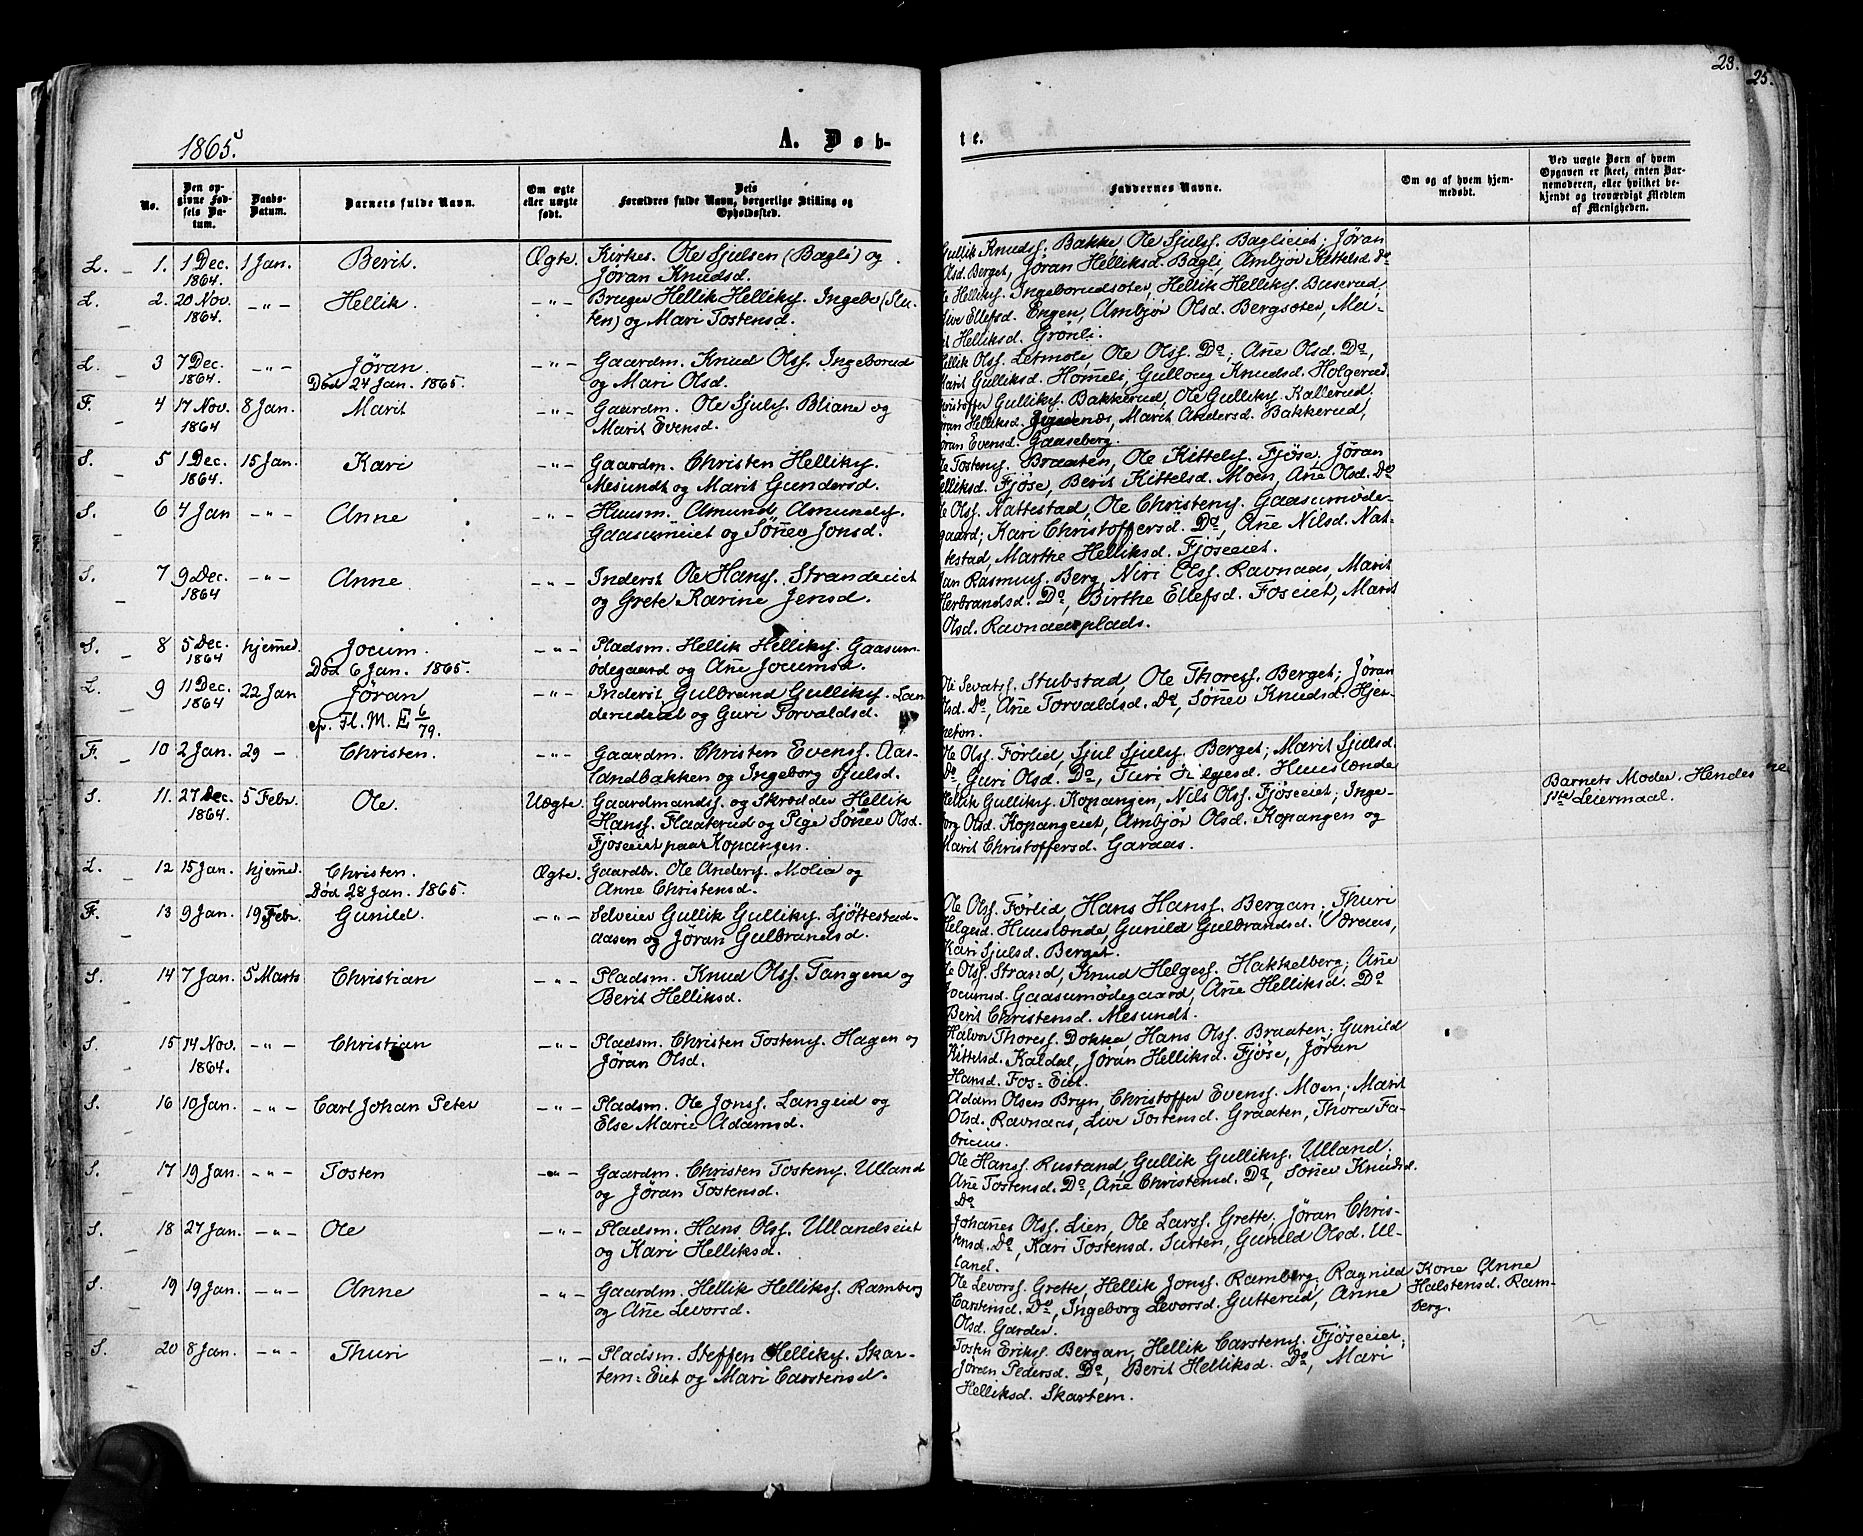 23.
25.
1865.
A. Døb-
te.
No.
Den op-
givne Fød-
sels Da-
tum.
Daabs-
Datum.
Barnets fulde Navn.
Om ægte
eller uægte
født.
Dets
Forældres fulde Navn, borgerlige Stilling og
Opholdssted.
Faddernes Navne.
Om og af hvem hjem-
medøbt.
Ved uægte Børn af hvem
Opgaven er skeet, enten Bar-
nemoderen, eller hvilket be-
kjendt og troværdigt Medlem
af Menigheden.
L. 1. 1 Dec. 1 Jan. Berit. Ægte. Kirkes. Ole Sjulsen (Bagli) og
1864. Jøran Knudsd.
Gullik Knuds. Bakke Ole Sjuls. Baglieiet; Jøran
Olsd. Berget, Jøran Helliksd. Bagli, Ambjør Kittelsd. Do
L. 2. 20 Nov. -"- Hellik. -"- Bruger Hellik Helliks. Ingebo (Slu-
1864. ten) og Mari Tostensd.
Helliks. Ingeborudsoter, Hellik Helliks. Buserud,
Live Ellefsd. Engen, Ambjør Olsd. Bergsoter, Mei-
Helliksd. Grønli.
L. 3 7 Dec. -"- Jøran. -"- Gaardm. Knud Ols. Ingeborud
1864. Død 24 Jan. 1865. og Mari Olsd.
Hellik Ols. Letmoli, Ole Ols. Do; Ane Olsd. Do,
Marit Gulliksd. Hømeli, Gulloug Knudsd. Holgerud.
F. 4 17 Nov. 8 Jan. Marit -"- Gaardm. Ole Sjuls. Bliane og
1864 Marit Evensd.
Christoffer Gulliks. Bakkerud, Ole Gulliks. Kallerud,
Jøran Helliksd. Marit Andersd. Bakkerud,
Jøran Evensd. Gaaseberg.
S. 5 1 Dec. 15 Jan. Kari -"- Gaardm. Christen Helliks.
1864. Mesundt og Marit Gundersd.
Ole Tostens. Braaten, Ole Kittels. Fjøse, Jøran
Helliksd. Fjøse, Berit Kittelsd. Moen, Ane Olsd. Do
S. 6 4 Jan -"- Anne -"- Huusm. Amund Amunds.
Gaasumeiet og Sønev Jonsd.
Ole Ols. Nattestad, Ole Christens. Gaasumøde-
gaard; Kari Christoffersd. Do, Ane Nilsd. Nat-
testad, Marthe Helliksd. Fjøseeiet.
S. 7 9 Dec. -"- Anne -"- Inderst Ole Hans. Strandeiet
1864 og Grete Karine Jensd.
Jan Rasmus. Berg, Niri Ols. Ravnaas, Marit
Herbrandsd. Do, Birthe Ellefsd. Foseiet, Marit
Olsd. Ravnaasplads.
S. 8 5 Dec. hjemed. Jocum. -"- Pladsm. Hellik Helliks. Gaasum-
1864 Død 6 Jan. 1865. ødegaard og Ane Jocumsd.
L. 9 11 Dec. 22 Jan Jøran -"- Inderst Gulbrand Gulliks. Lan-
1864 cp. Fl. M. E 6/79. derudeiet og Guri Torvaldsd.
Ole Sevats. Stubstad, Ole Thores. Berget; Jøran
Olsd. Do, Ane Torvaldsd. Do, Sønev Knudsd. Hjer-
neton.
F. 10 2 Jan. 29 - Christen. -"- Gaardm. Christen Evens. Aas-
landbakken og Ingeborg Sjulsd.
Ole Ols. Førlid, Sjul Sjuls. Berget; Marit Sjulsd.
Do, Guri Olsd. Do, Turi Helgesd. Huuslænde
S. 11. 27 Dec. 5 Febr. Ole. Uægte. Gaardmands. og Skrædder Hellik
1864. Hans. Flaaterud og Pige Sønev Olsd.
Fjøseeiet paa Kopangen.
Hellik Gulliks. Kopangen, Nils Ols. Fjøseeiet; Inge-
borg Olsd. Kopangeiet, Ambjør Olsd. Kopangen og
Marit Christoffersd. Garaas.
Barnets Moder. Hendes
1ste Leiermaal.
L. 12 15 Jan. hjemed. Christen. Ægte. Gaardbr. Ole Anders. Molia og
Død 28 Jan. 1865. Anne Christensd.
F. 13 9 Jan. 19 Febr. Gunild. -"- Selveier Gullik Gulliks. Ljøttestad-
aasen og Jøran Gulbrandsd.
Ole Ols. Førlid, Hans Hans. Bergan; Thuri
Helgesd. Huuslænde, Gunild Gulbrandsd. Voraas,
Kari Sjulsd. Berget.
S. 14 7 Jan. 5 Marts Christian -"- Pladsm. Knud Ols. Tangene og
Berit Helliksd.
Ole Ols. Strand, Knud Helges. Hakkelberg; Ane
Jocumsd. Gaasumødegaard, Ane Helliksd. Do
Berit Christensd. Mesundt.
S. 15 14 Nov. -"- Christian -"- Pladsm. Christen Tostens. Hagen og
1864. Jøran Olsd.
Halvor Thores. Dokka, Hans Ols. Braaten; Gunild
Kittelsd. Kaldal, Jøran Helliksd. Fjøse, Jøran
Hansd. Fos-Eiet.
S. 16 10 Jan. -"- Carl Johan Peter -"- Pladsm. Ole Jons. Langeid og
Else Marie Adamsd.
Adam Olsen Bryn, Christoffer Evens. Moen; Marit
Olsd. Ravnaas, Live Tostensd. Graaten, Thora Fa-
bricius.
S. 17 19 Jan. -"- Tosten -"- Gaardm. Christen Tostens. Ulland
og Jøran Tostensd.
Ole Hans. Rustand, Gullik Gulliks. Ulland;
Ane Tostensd. Do, Ane Christensd. Do, Sønev Knudsd.
Do
S. 18 27 Jan. -"- Ole -"- Pladsm. Hans Ols. Ullandseiet
og Kari Helliksd.
Johanes Ols. Lien, Ole Lars. Grette; Jøran Chris-
tensd. Do, Kari Tostensd. Surten, Gunild Olsd. Ul-
land.
S. 19 19 Jan. -"- Anne -"- Gaardm. Hellik Helliks. Ramberg
og Ane Levorsd.
Ole Levors. Grette, Hellik Jons. Ramberg; Ragnild
Carstensd. Do, Ingeborg Levorsd. Gutterud, Anne
Olsd. Garder.
Kone Anne
Halstensd. Ram-
berg.
S. 20 8 Jan. -"- Thuri -"- Pladsm. Steffen Helliks. Skar-
tem-Eiet og Mari Carstensd.
Tosten Eriks. Bergan, Hellik Carstens. Fjøseeiet;
Jøran Pedersd. Do, Berit Helliksd. Do, Mari
Helliksd. Skartem.